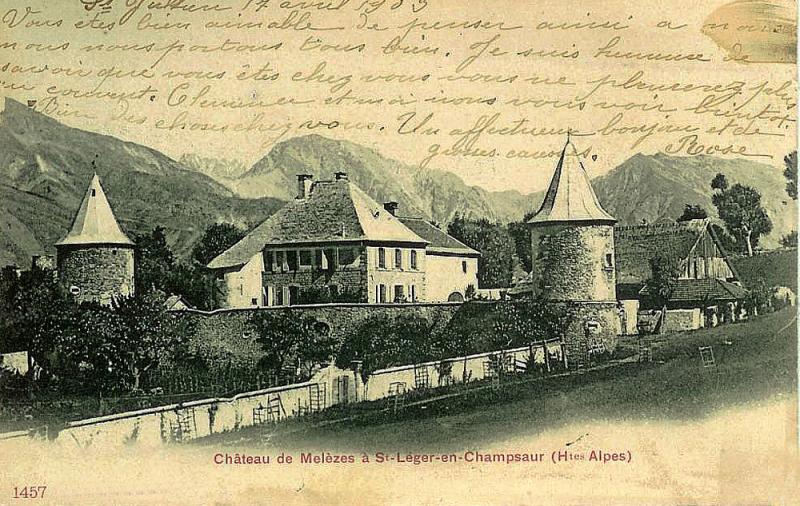 St Julien 17 avril 1903
Vous êtes bien aimable de penser ainsi a
nous nous portons tous bien. Je suis heureuse de
savoir que vous êtes chez vous vous ne pleurerez plus
au couvent. Clemence et moi nous vous voir bientot,
bien des choses chez vous. Un affectueux bonjour et de
grosses caresses. Rose
Château de Melèzes à St-Léger-en-Champsaur (Htes Alpes)
1457